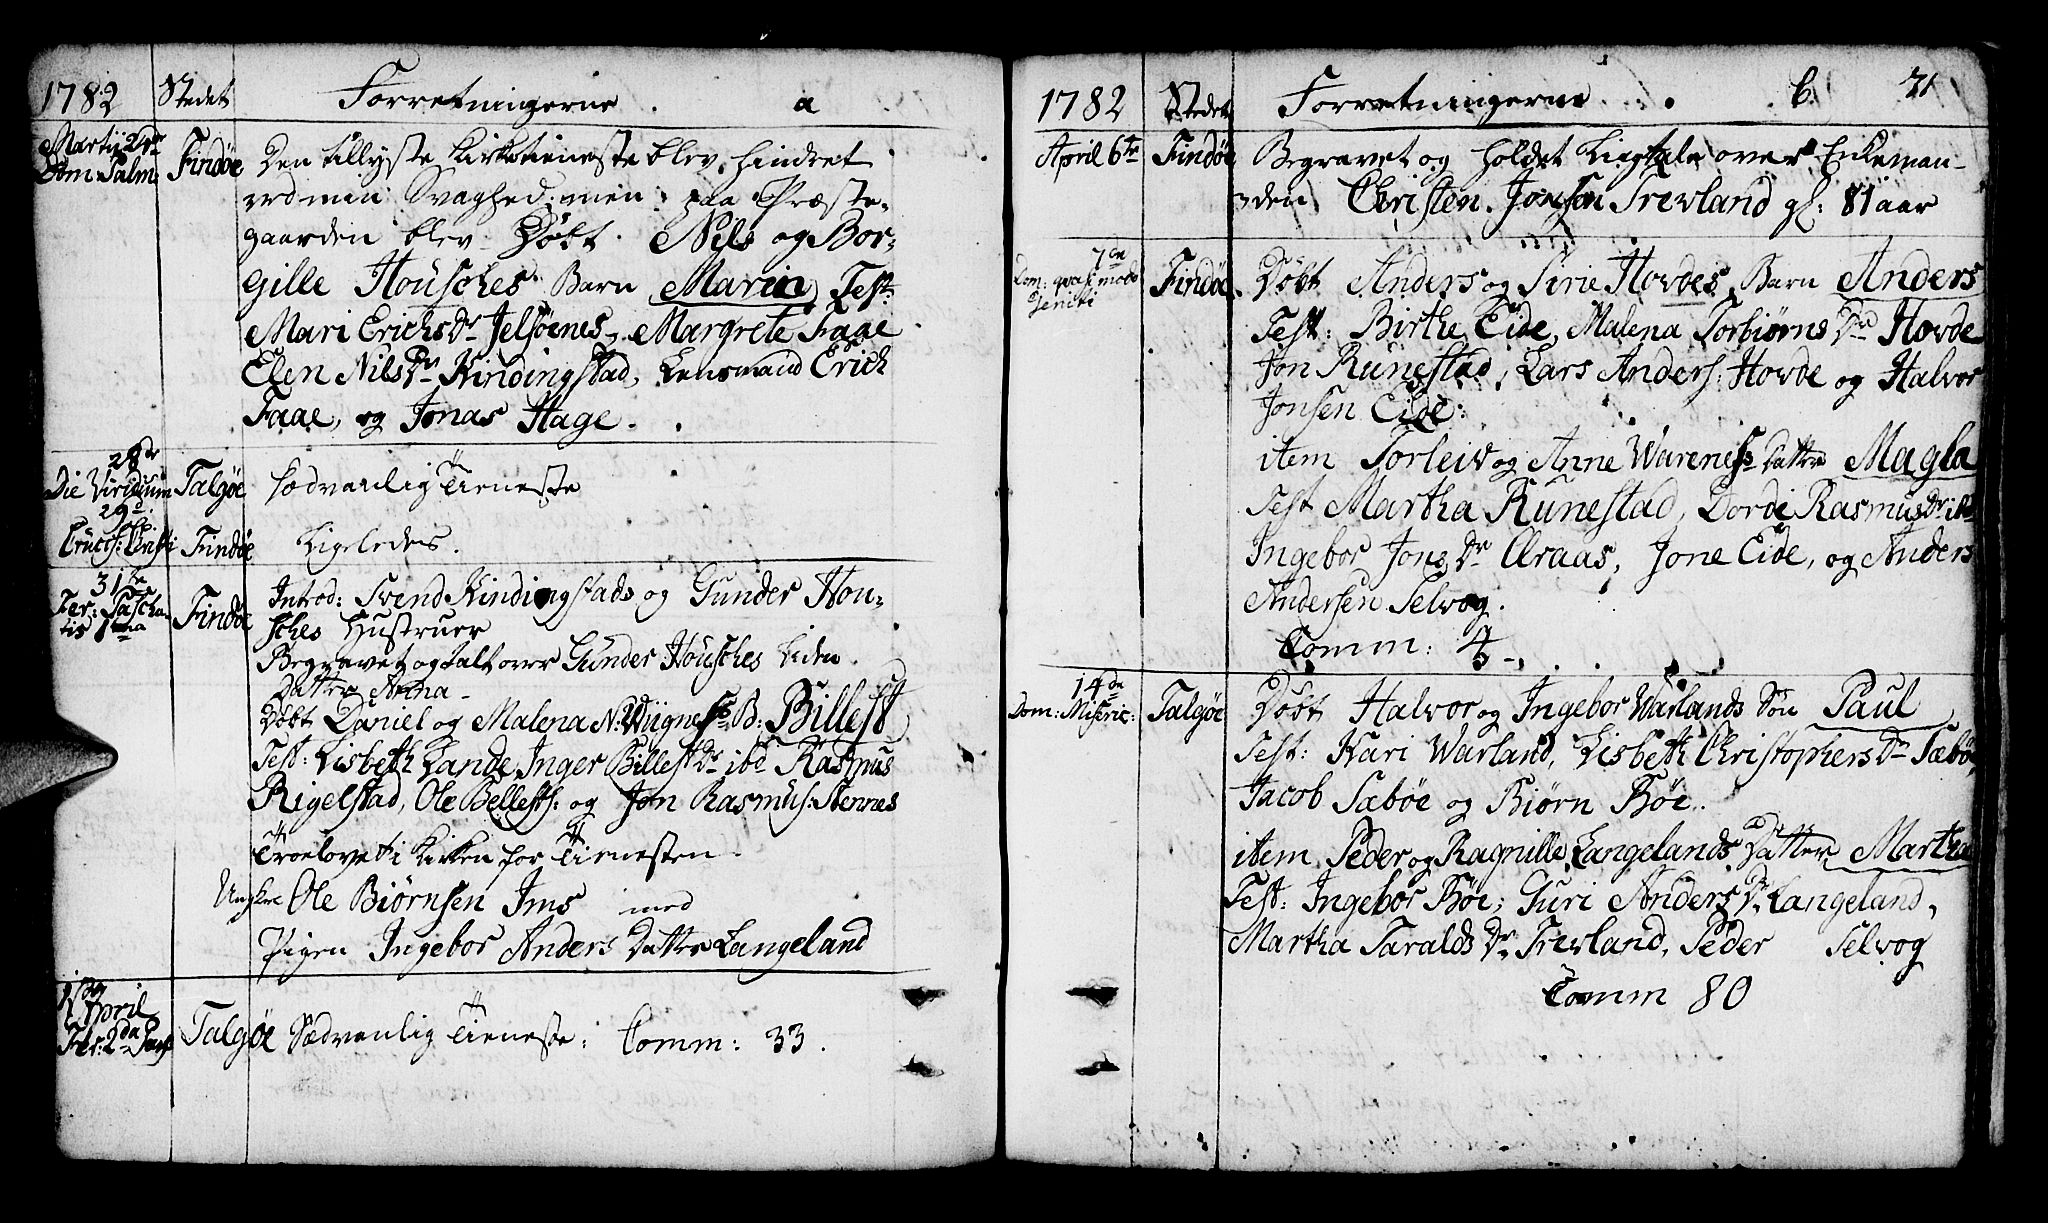 1782 Stedet Forretningerne . a
Martij 24de
Dom: Palm: Findøe Den tillyste Kirketieneste blev hindret
ved min Svaghed; men paa Præste-
gaarden blev Døbt Nils og Bor-
gille Housches Barn Marin Test:
Mari Erichs Dr Jelsøenes, Margrete Faae
Elen Nils Dr Kindingstad, Lensmand Erich
Faae, og Jonas Hage.
28de
Die Viridium Talgøe Sædvanlig Tieneste
29de
Crucif: Christi Findøe Ligeledes.
31te
Fer: Pascha-
tis 1ma Findøe Introd: Svend Kindingstads og Gunder Hou-
sches Hustruer
Begravet og talt over Gunder Housches liden
Datter Anna
Døbt Daniel og Malena N: Wiignes B: Billest
Test: Lisbeth Lande, Inger Billest Dr ibd Rasmus
Rigelstad, Ole Bellests: og Jon Rasmus: Stennes
Troelovet i Kirken for Tienesten
Unkr Ole Biørnsen Ims med
Pigen Ingebor Anders Datter Langeland
1ste April
Fer: 2da Pasch Talgøe Sædvanlig Tieneste; Comm: 33.
1782 Stedet Forretningerne . b. 71
April 6te Findøe Begravet og holdet Liigtale over Enkeman-
den Christen Jonsen Trevland gl: 81 aar
7de
Dom: quasimodo
geniti Findøe Døbt Anders og Sirie Hovdes Barn Anders
Test: Birthe Eide, Malena Torbiørns Dr Hovde
Jon Runestad, Lars Anders: Hovde og Halvor
Jonsen Eide:
item Torleiv og Anne Wareness Datter Magla
Test Martha Runestad, Dordi Rasmus Dr ibd
Ingebor Jons Dr Araas, Jone Eide, og Anders
Andersen Selvog.
Comm: 4
14de
Dom: Miseric: Talgøe Døbt Halvor og Ingebor Warlands Søn Paul
Test: Kari Warland, Lisbeth Christophers Dr Sæbøe
Jacob Sæbøe og Biørn Bøe.
item Peder og Ragnille Langelands Datter Martha
Test: Ingebor Bøe, Guri Anders Dr Langeland,
Martha Taralds Dr Trevland, Peder Selvog
Comm 80